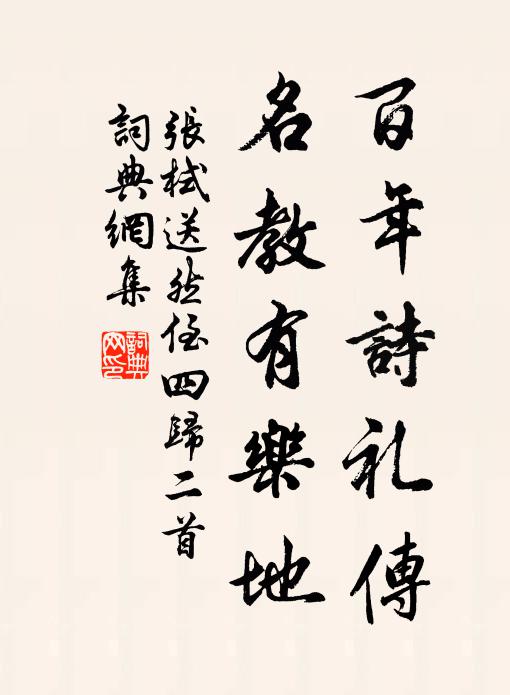 百年詩礼傳
名教有樂地
張栻送然侄四歸二首
詞典網集
詞典网印